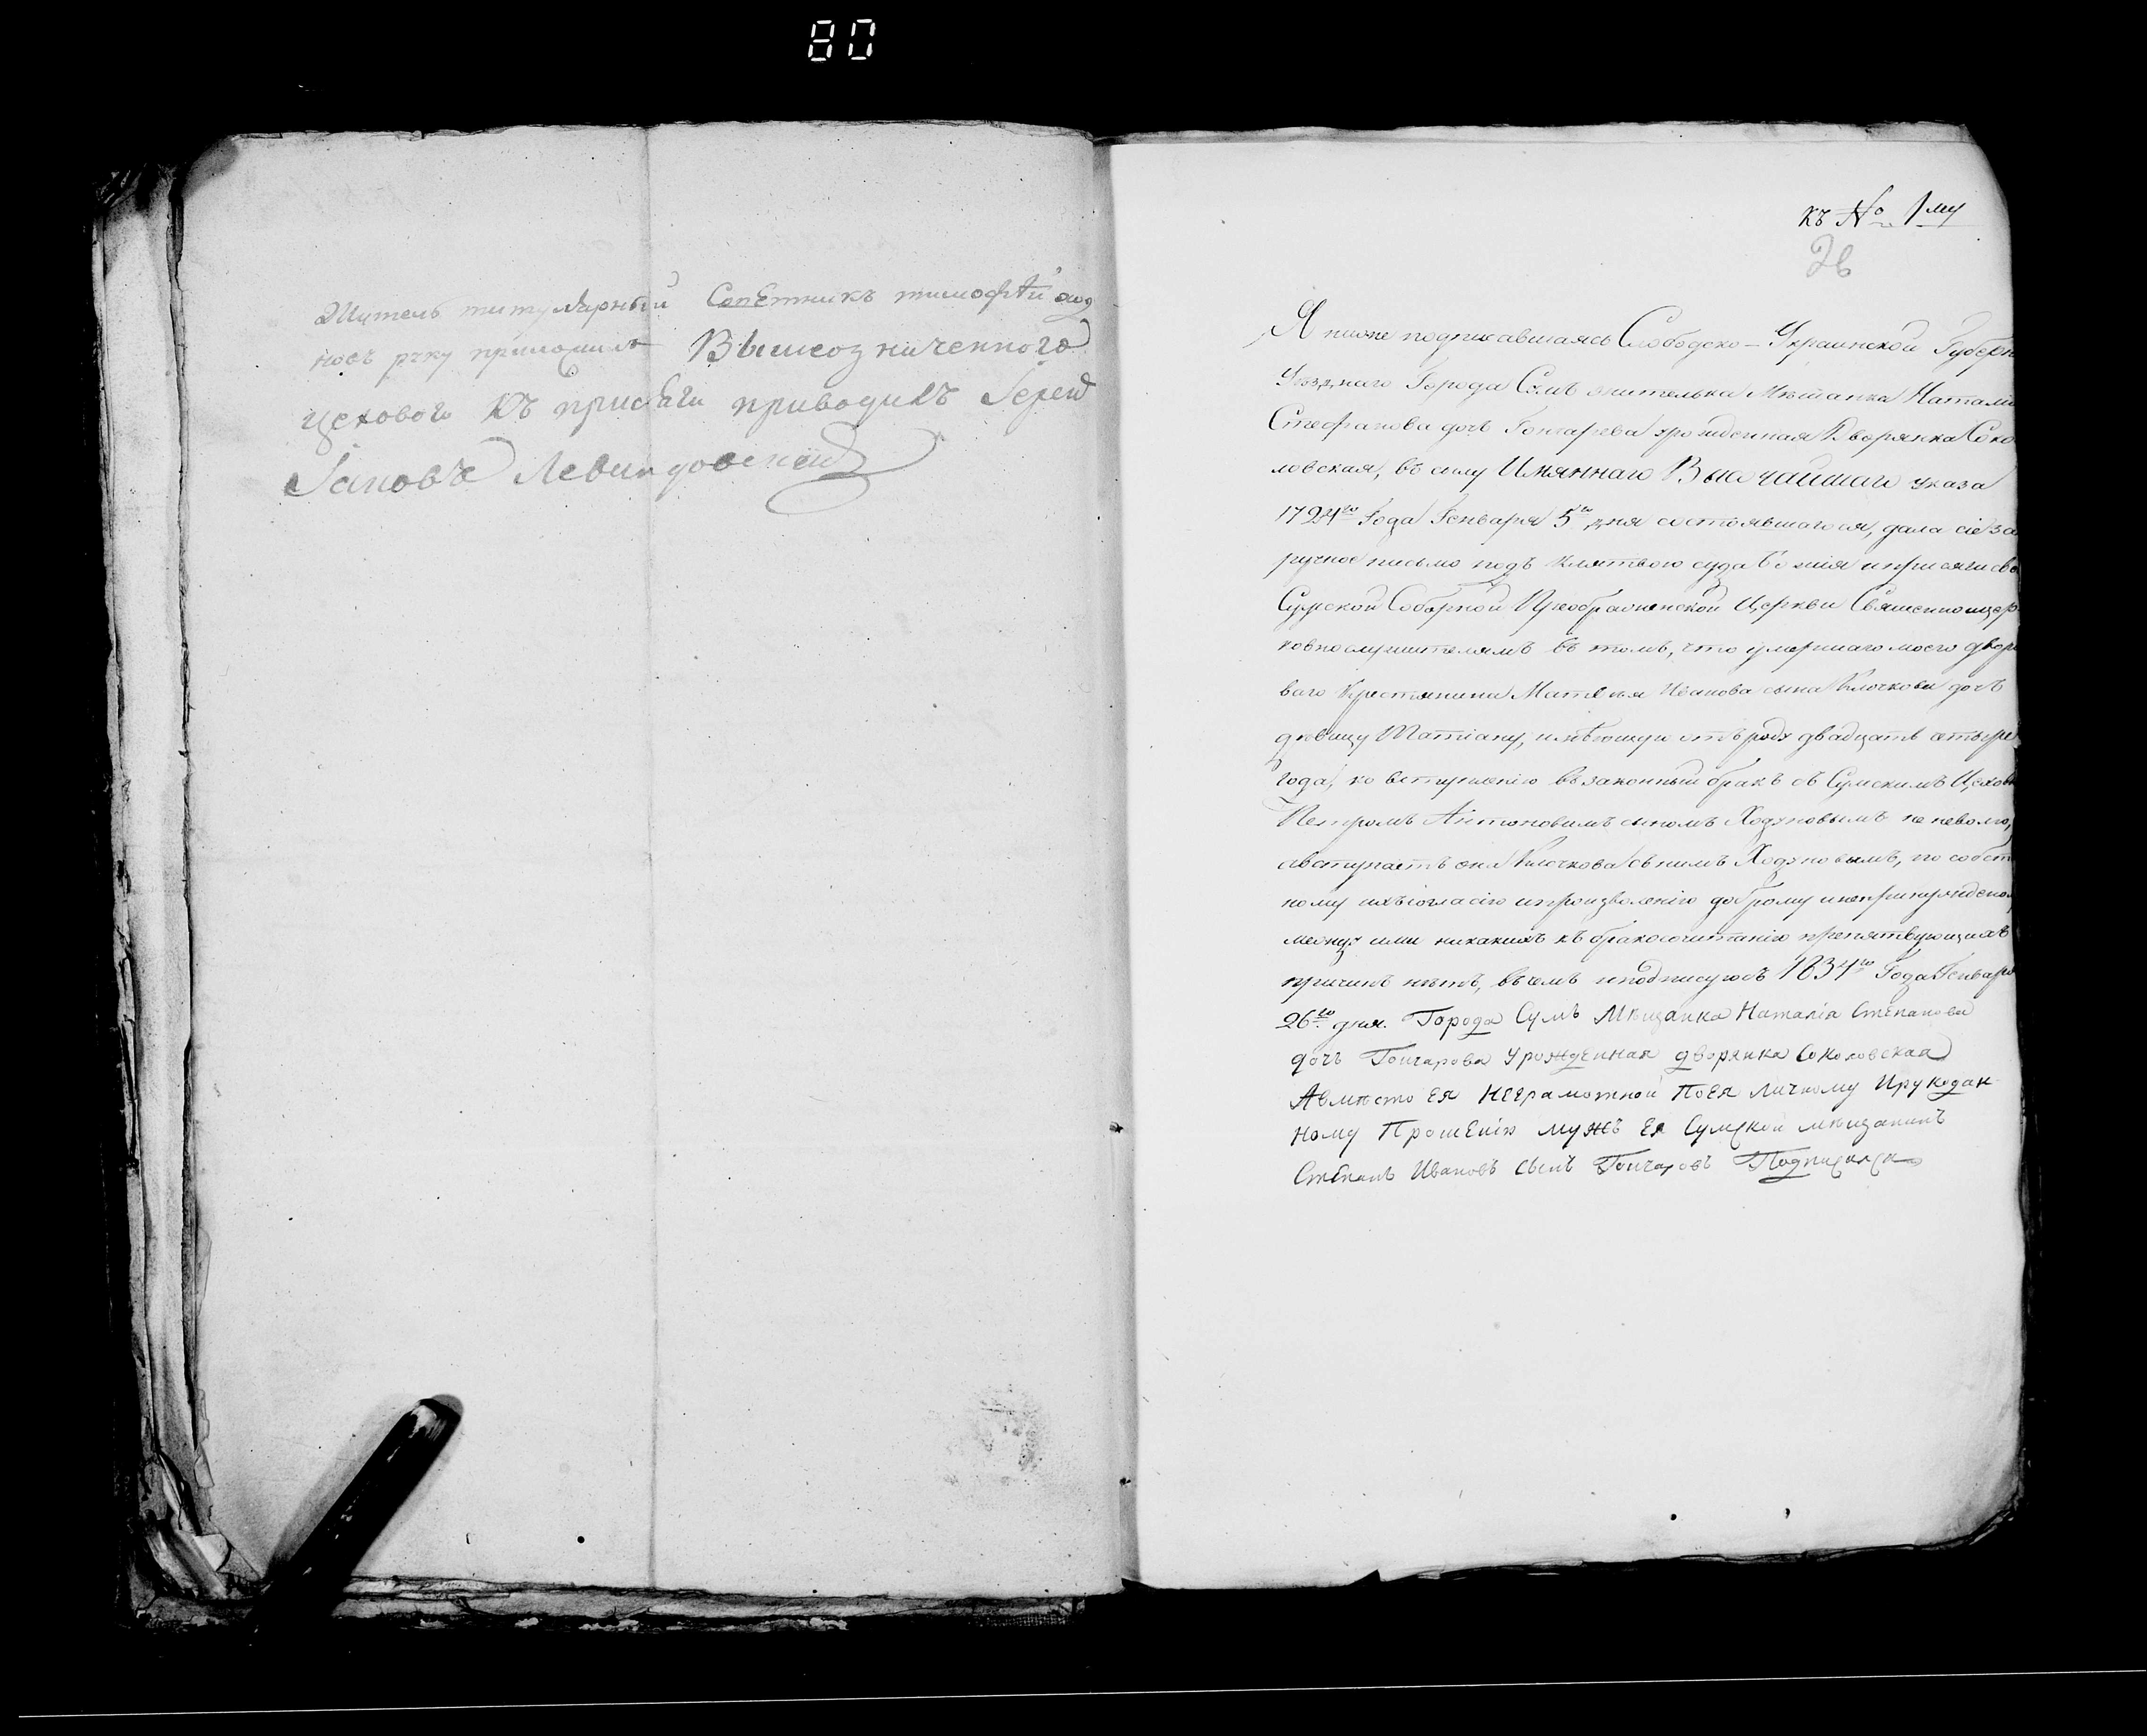 80
Житель титулярный Совѣтникъ тимофѣй ходу
новъ руку приложилъ Вышеозначенного
цехового къ присяги приводилъ Іерей
Іаковъ Левандовский
къ № 1му
26
Я ниже подписавшаясь Слободско-Украинской Губерн
Уѣзднаго Города Сумъ жителька Мѣщанка Наталія
Стефанова дочь Гончарева урожденная Дворянка Соко
ловская, въ силу Имяннаго Высочайшаго указа
1724го Года Генваря 5го дня состоявшагося, дала сіе за
ручное письмо подъ клятвою суда Божія и присяги сво
Сумской Соборной Преображенской Церкви Священноцер
ковнослужителямъ въ томъ, что умершаго моего двор
ваго Крестянина Матвѣя Иванова сына Клочкова дочь
дѣвицу Татіану, имѣющую отъ роду двадцать четыре
года, ко вступленію въ законный бракъ съ Сумскимъ Цехов
Петромъ Антоновымъ сыномъ Ходуновымъ не неволю,
а вступаетъ она Клочкова съ нимъ Ходуновымъ, по собст
ному ихъ согласію и произволенію доброму и непринужденно
между ими никакихъ къ бракосочитанію препятствующихъ
причинъ нѣтъ, въ чемъ и подписуюсь 1834го Года Генваря
26го дня. Города Сумъ Мѣщанка Наталія Степанова
дочь Гончарова Урожденная дворянка Соколовская
А вмѣсто Ея Неграмотной По Ея личному И рукодан
ному Прошенію мужъ Ея Сумской мѣщанинъ
Степанъ Ивановъ сынъ Гончаровъ Подписался